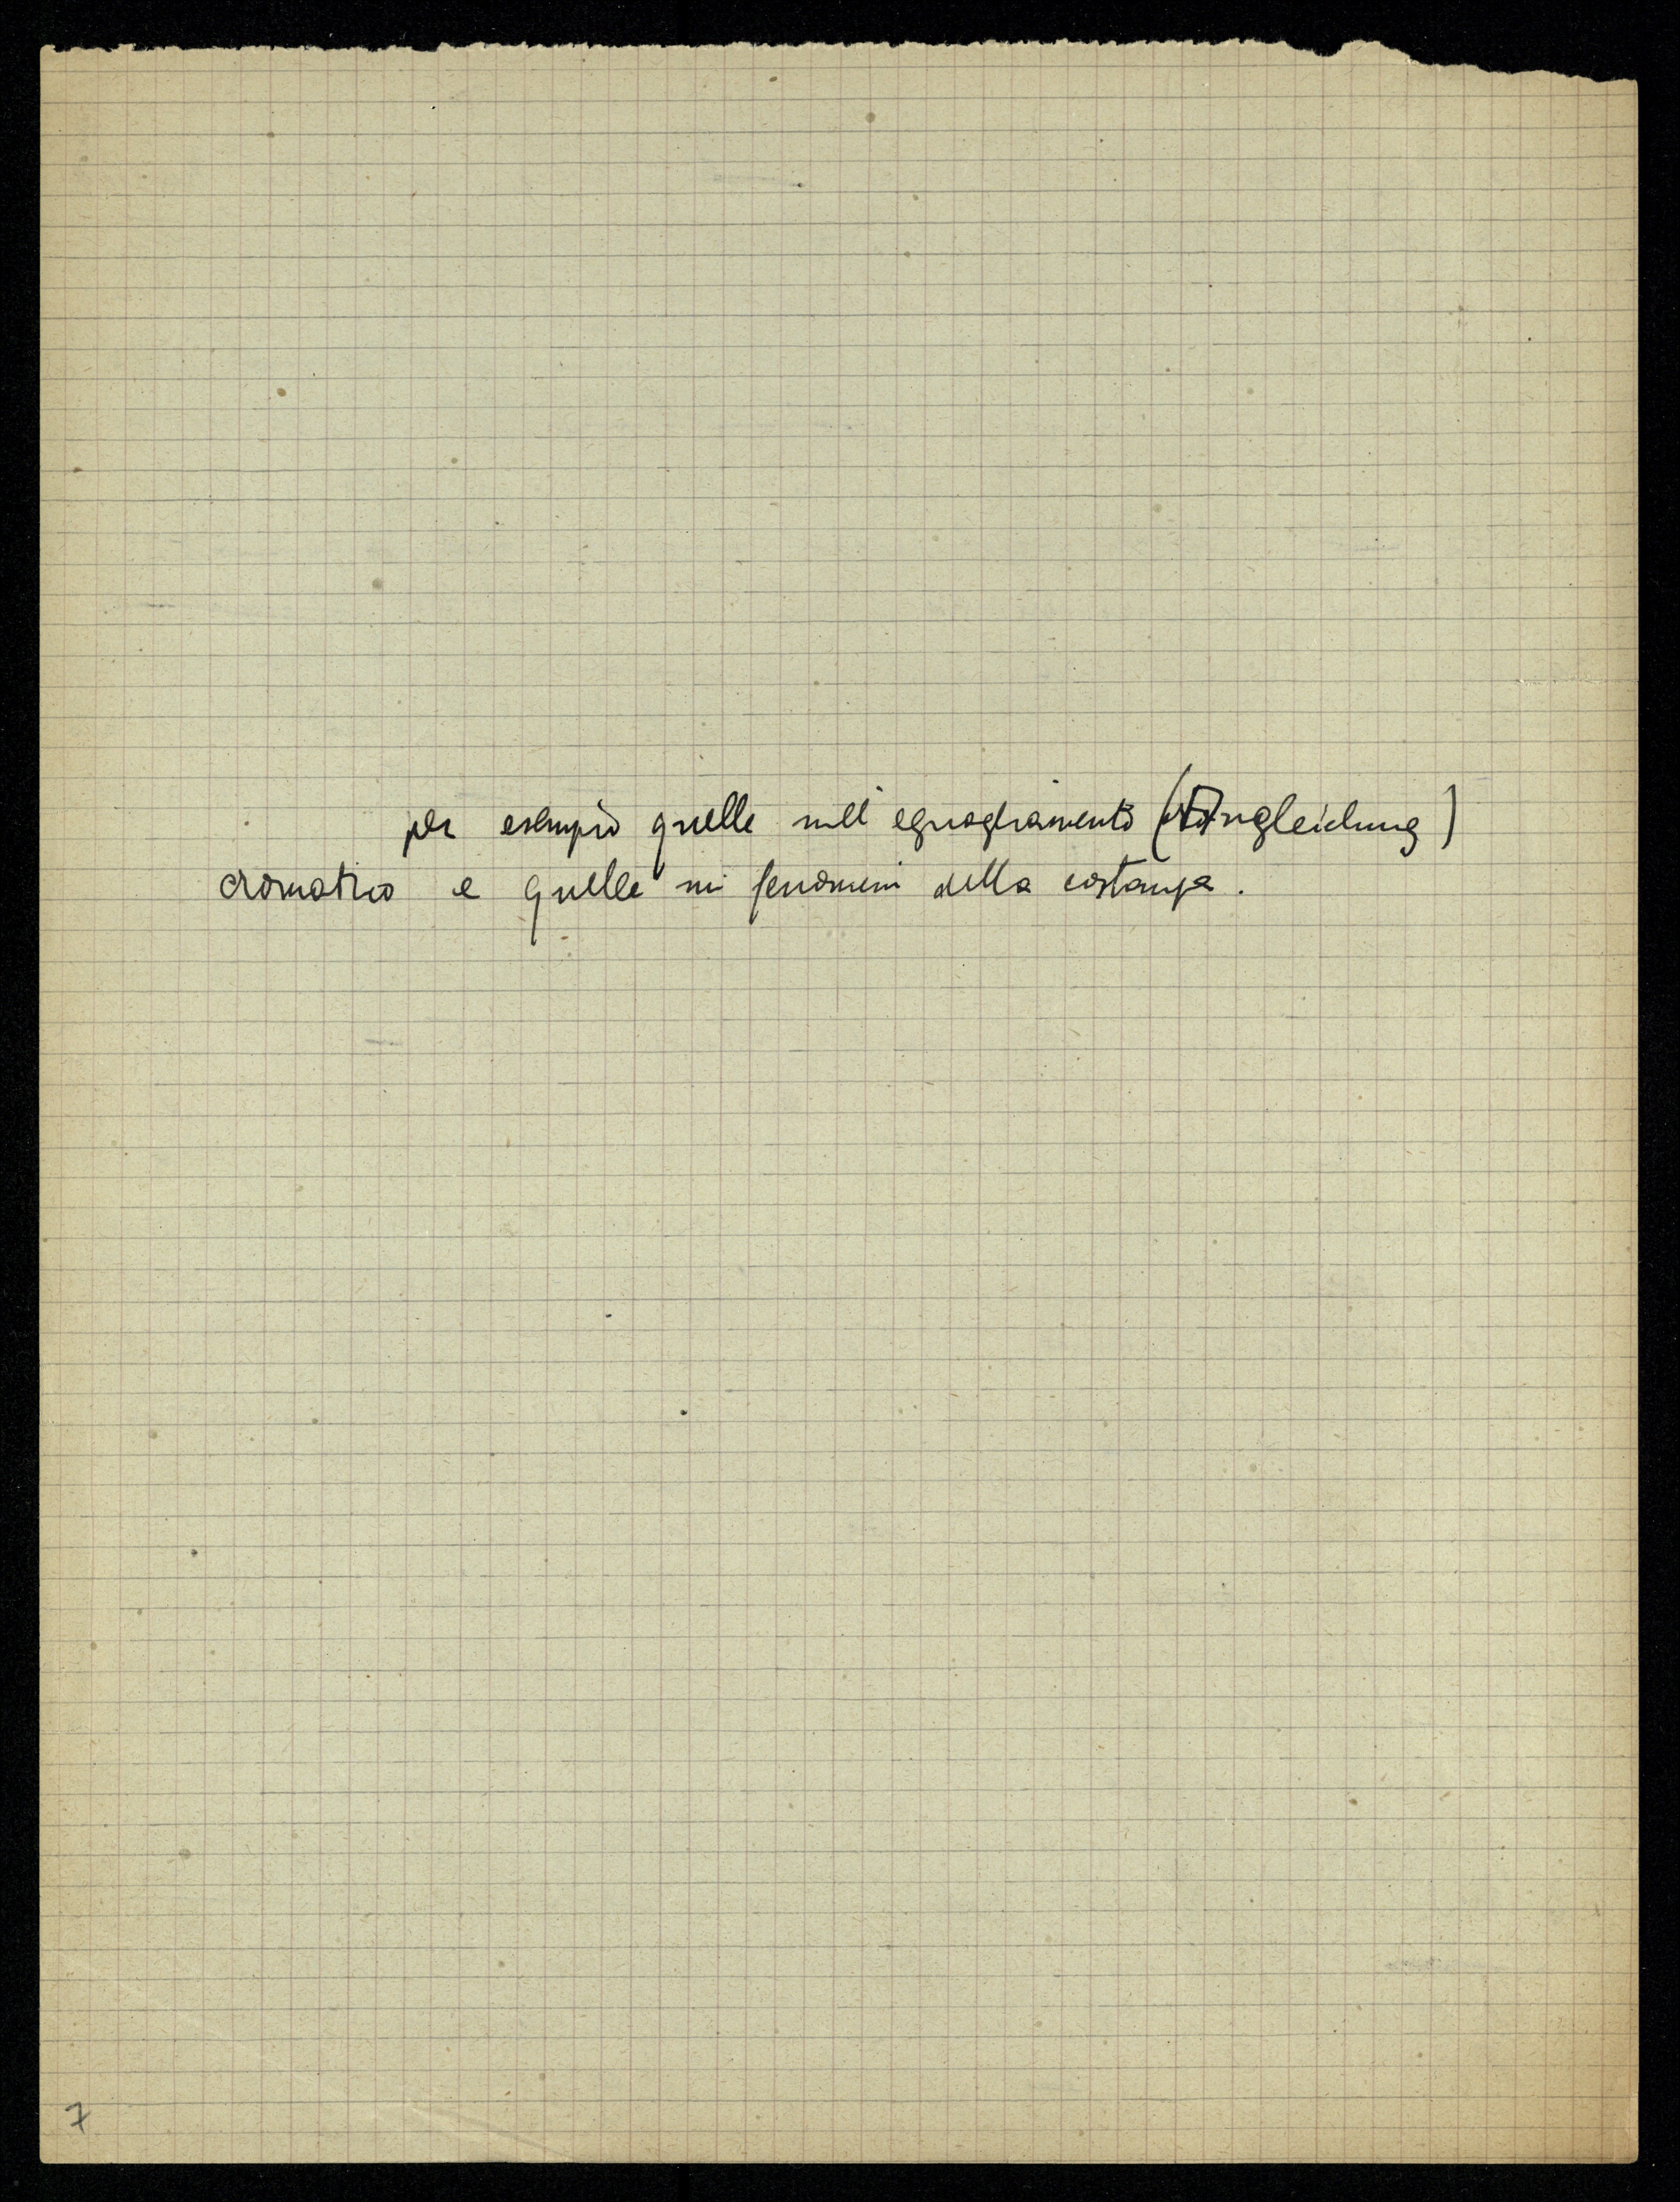 per esempio quelle sull'eguagliamento (Angleichung)
cromatico e quelle sui fenomeni della costanza.
7